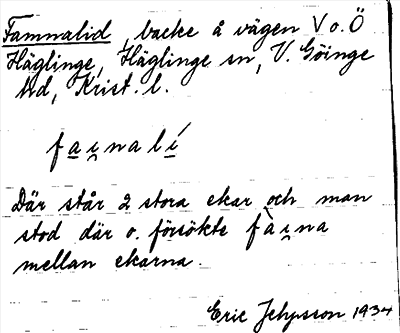 Famnalid, backe å vägen V o. Ö
Häglinge, Häglinge sn, V. Göinge
hd, Krist. l.
fai̯nalí
Där står 2 stora ekar och man
stod där o. försökte fài̯na
mellan ekarna.
Eric 1934